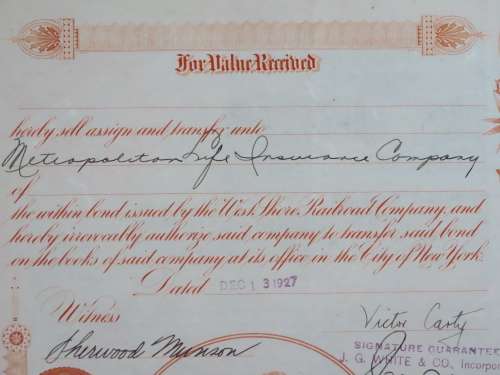 For Value Received
hereby sell assign and transfer unto
Metropolitan Life Insurance Company
of
the within bond issued by the West Shore Railroad Company, and
hereby irrevocably authorize said company to transfer said bond
on the books of said company at its office in the City of New York.
Dated DEC 13 1927
Witness
Victor Carty
Sherwood Munson
SIGNATURE GUARANTEE
J. G. WHITE & CO., Incorpo